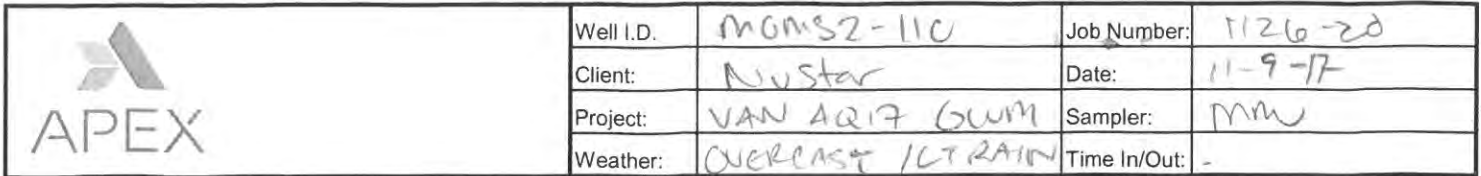 APEX
Well I.D. MGMS2-110 Job Number: 1126-20
Client: NuStar Date: 11-9-17
Project: VAN 4Q17 GWM Sampler:
Weather: OVERCAST / LT RAIN Time In/Out: -